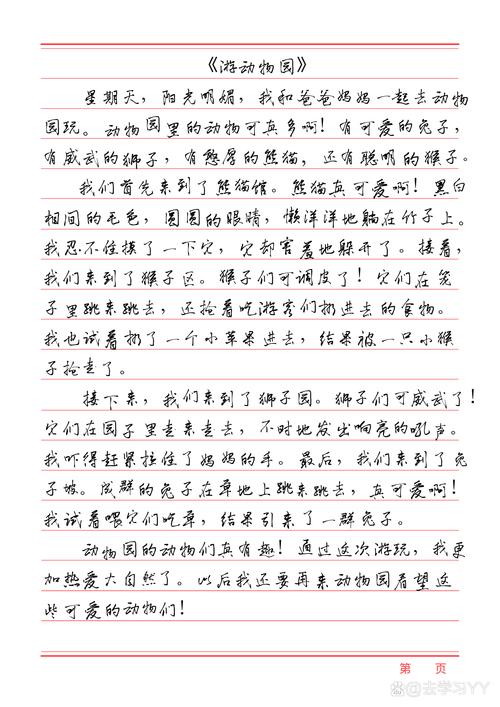 《游动物园》
星期天，阳光明媚，我和爸爸妈妈一起去动物
园玩。动物园里的动物可真多啊！有可爱的兔子，
有威武的狮子，有憨厚的熊猫，还有聪明的猴子。
我们首先来到了熊猫馆。熊猫真可爱啊！黑白
相间的毛色，圆圆的眼睛，懒洋洋地躺在竹子上。
我忍不住摸了一下它，它却害羞地躲开了。接着，
我们来到了猴子区。猴子们可调皮了！它们在笼
子里跳来跳去，还抢着吃游客们扔进去的食物。
我也试着扔了一个小苹果进去，结果被一只小猴
子抢走了。
接下来，我们来到了狮子园。狮子们可威武了！
它们在园子里走来走去，不时地发出响亮的吼声。
我吓得赶紧拉住了妈妈的手。最后，我们来到了兔
子坡。成群的兔子在草地上跳来跳去，真可爱啊！
我试着喂它们吃草，结果引来了一群兔子。
动物园的动物们真有趣！通过这次游玩，我更
加热爱大自然了。以后我还要再来动物园看望这
些可爱的动物们！
第 页
@去学习YY